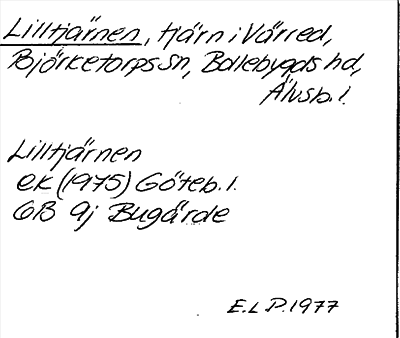 Lilltjärnen, tjärn i Värred,
Björketorps sn, Bollebygds hd,
Älvsb. l.
Lilltjärnen
ek (1975) Göteb. l.
6B 9j Bugärde
E.L.P. 1977